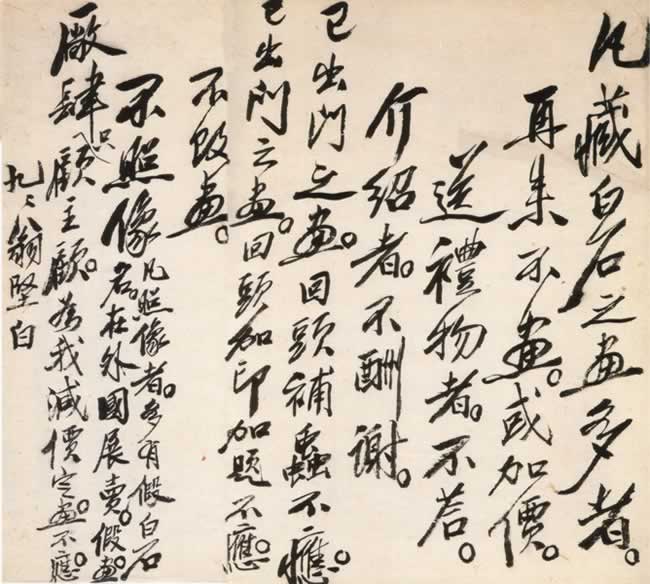 凡藏白石之畫多者。
再來不畫。或加價。
送禮物者。不答。
介紹者。不酬謝。
已出門之畫。回頭補蟲不應。
已出門之畫。回頭加印加題不應。
不改畫。
不照像
凡照像者。多有假白石
名。在外國展賣。假畫。
廠肆只顧主顧。為我減價定畫。不應。
翁堅白